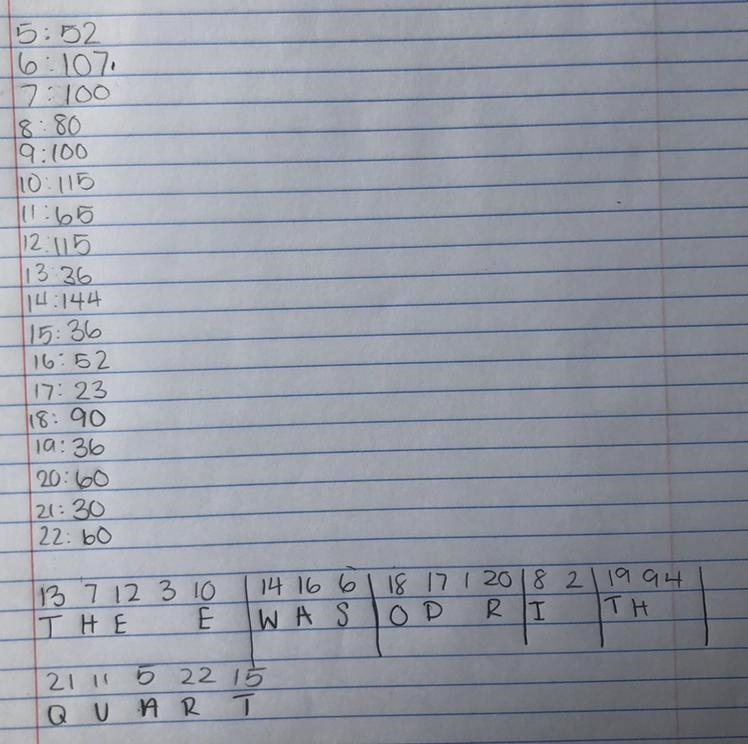 5:52
6:107.
7:100
8:80
9:100
10:115
11:65
12:115
13:36
14:144
15:36
16:52
17:23
18:90
19:36
20:60
21:30
22:60
13 7 12 3 10 | 14 16 6 | 18 17 1 20 | 8 2 | 19 9 4 |
T H E E | W A S | O D R | I | T H |
21 11 5 22 15
Q U A R T